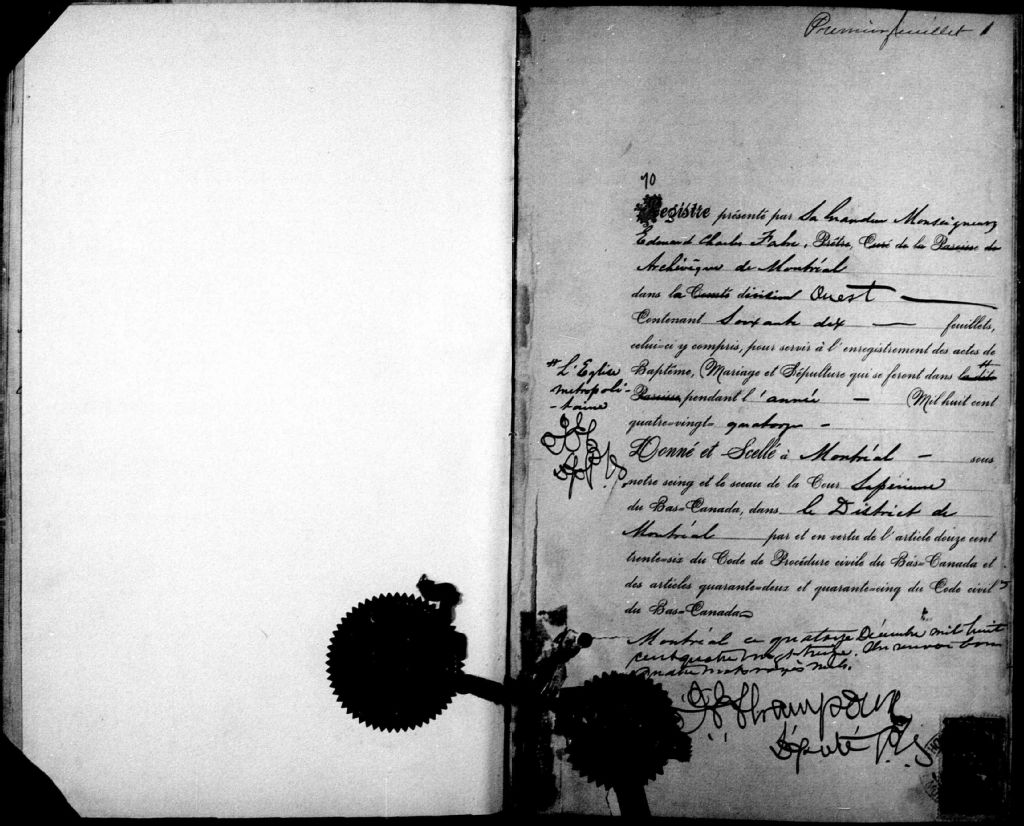 Premier feuillet 1
10
Registre présenté par Sa Grandeur Monseigneur
Edouard Charles Fabre, Prêtre, Curé de la Paroisse de
Archévêque de Montréal
dans la Comté division Ouest —
Contenant Soixante dix — feuillets,
celui-ci y compris, pour servir à l'enregistrement des actes de
Baptême, Mariage et Sépulture qui se feront dans la dite #
# L'Eglise
metropoli-
-taine
Paroisse pendant l'année — Mil huit cent
quatre-vingt- quatorze -
Donné et Scellé à Montréal — sous
notre seing et le sceau de la Cour Supérieure
du Bas-Canada, dans le District de
Montréal par et en vertu de l'article douze cent
trente-six du Code de Procédure civile du Bas-Canada et
des articles quarante-deux et quarante-cinq du Code civil
du Bas-Canada
Montréal ce quatorze Décembre mil huit
cent quatre vingt treize. Un renvoi bon
quatre mots rayés nuls.
Député P.